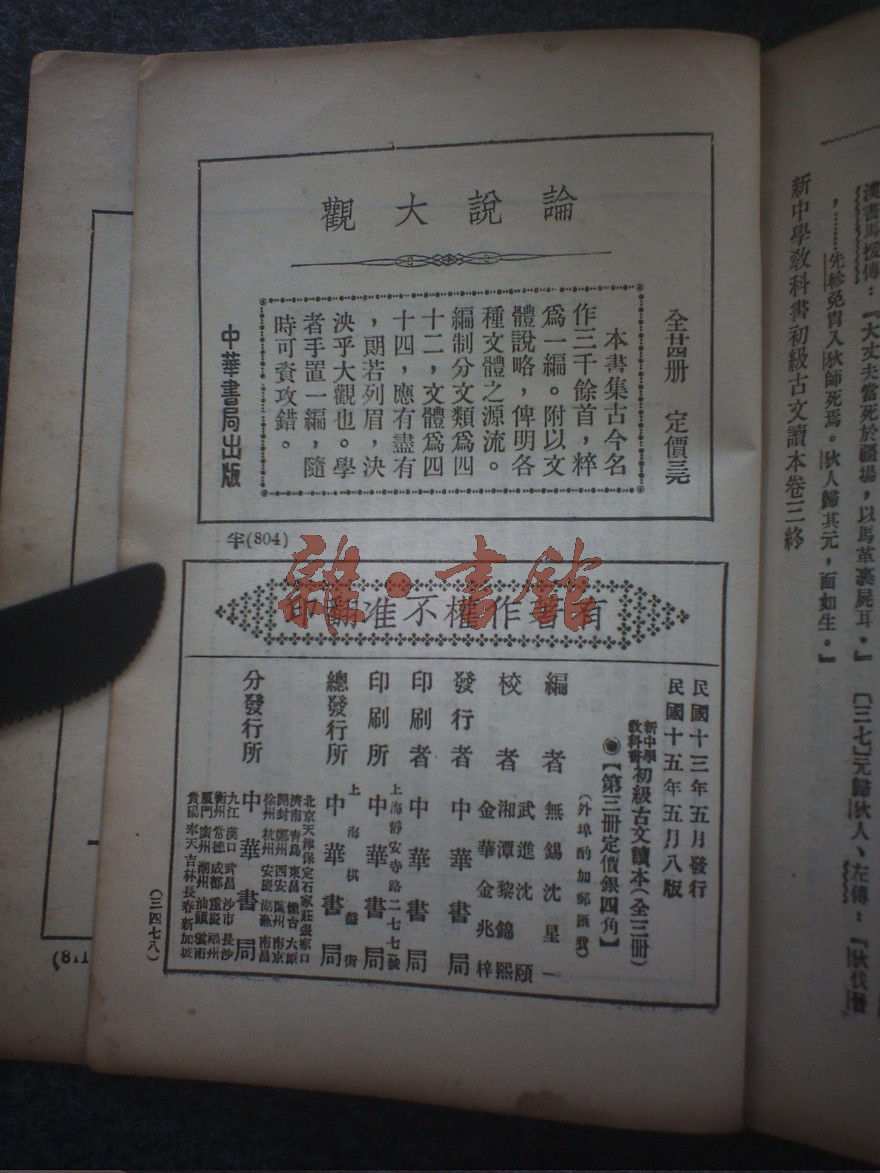 漢書馬援傳：『大丈夫當死於疆場，以馬革裹屍耳。』 〔三七〕元歸狄人、左傳：『狄伐晉
，………先軫免胄入狄師死焉。狄人歸其元，面如生。』
新中學教科書初級古文讀本卷三終
論說大觀
全廿四册 定價三元
本書集古今名
作三千餘首，粹
爲一編。附以文
體說略，俾明各
種文體之源流。
編制分文類爲四
十二，文體爲四
十四，應有盡有
，朗若列眉，決
泱乎大觀也。學
者手置一編，隨
時可資攻錯。
中華書局出版
(804)
雜·書館
有著作權不准翻印
民國十三年五月發行
民國十五年五月八版
新中學教科書初級古文讀本(全三册)
◉【第三册定價銀四角】
(外埠酌加郵匯費)
編者 無錫沈星一
校者 武進沈頤
湘潭黎錦熙
金華金兆梓
發行者 中華書局
印刷者 中華書局
上海靜安寺路二七七號
印刷所 中華書局
上海棋盤街
總發行所 中華書局
分發行所 中華書局
北京天津保定石家莊張家口
濟南青島東昌煙台太原
開封鄭州西安蘭州南京
徐州杭州安慶蕪湖南昌
九江漢口武昌沙市長沙
衡州常德成都重慶福州
廈門廣州潮州汕頭雲南
貴陽奉天吉林長春新加坡
(三四七八)